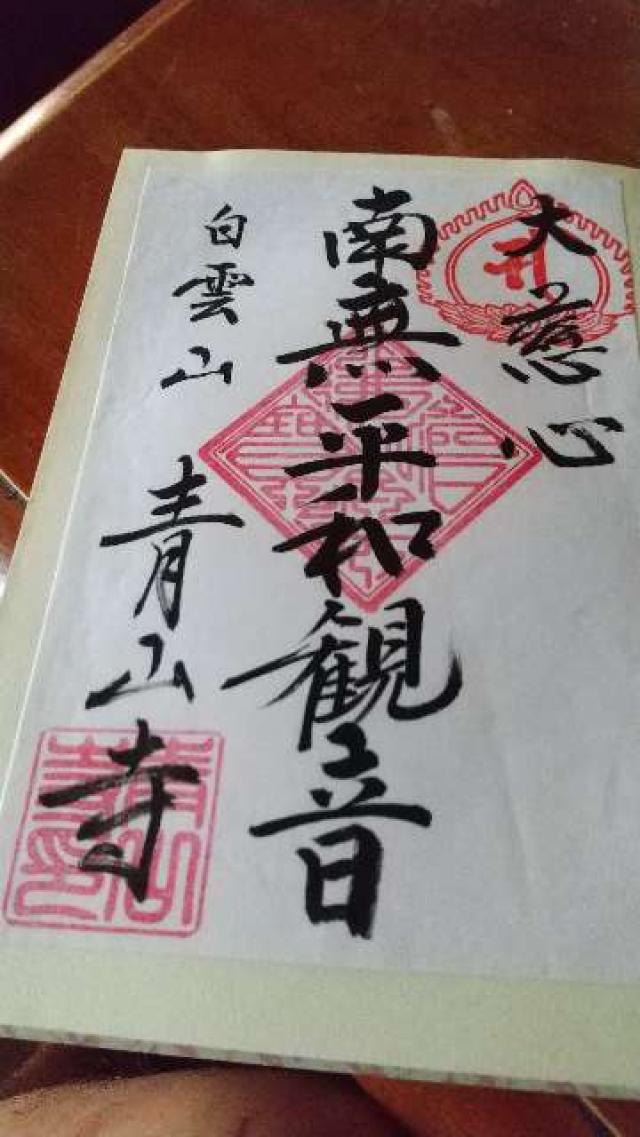 大慈心
南無平和観音
白雲山 青山寺